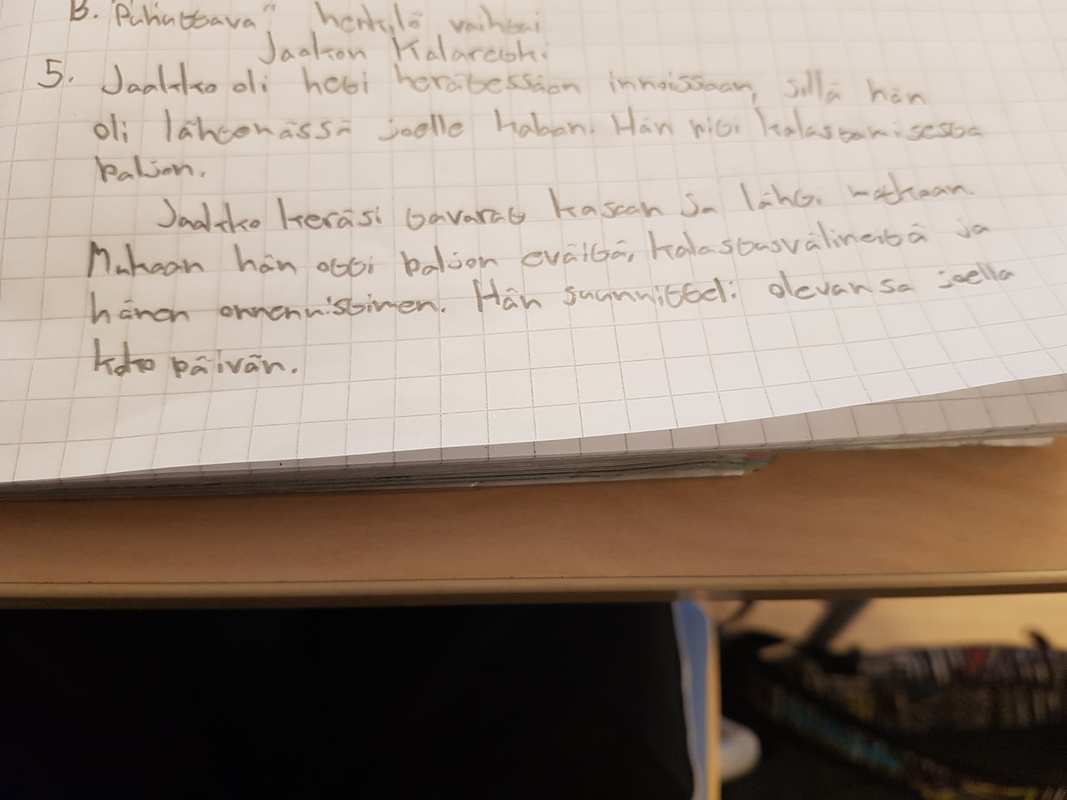 B. "Puhuttava" henkilö vaihtui
Jaakon Kalaretki
5. Jaakko oli heti herätessään innoissaan, sillä hän
oli lähdönässä joelle kalaan. Hän piti kalastamisesta
paljon.
Jaakko keräsi tavarat kasaan ja lähti matkaan.
Mukaan hän otti paljon eväitä, kalastusvälineitä ja
hänen onnennistimen. Hän suunnitteli olevansa joella
koko päivän.